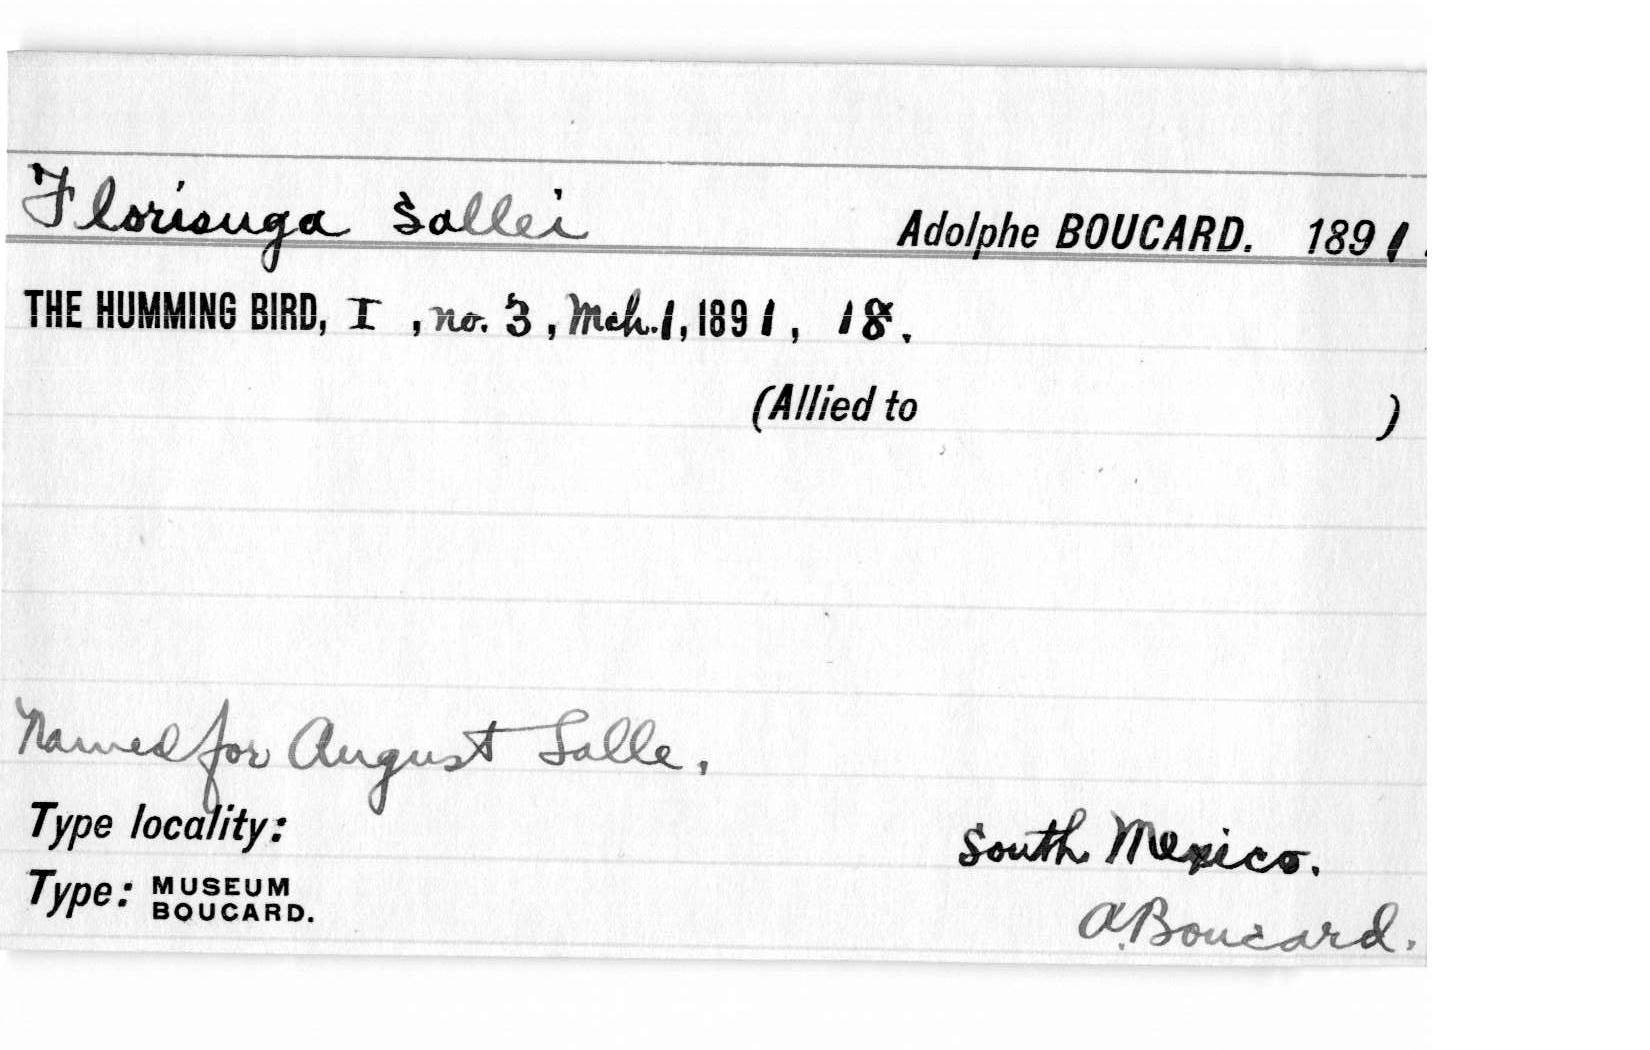 Florisuga Sallei Adolphe BOUCARD. 1891.
THE HUMMING BIRD, I, no. 3, Mch. 1, 1891, 18.
(Allied to )
Named for August Salle.
Type locality: South Mexico.
Type: MUSEUM BOUCARD. A. Boucard.